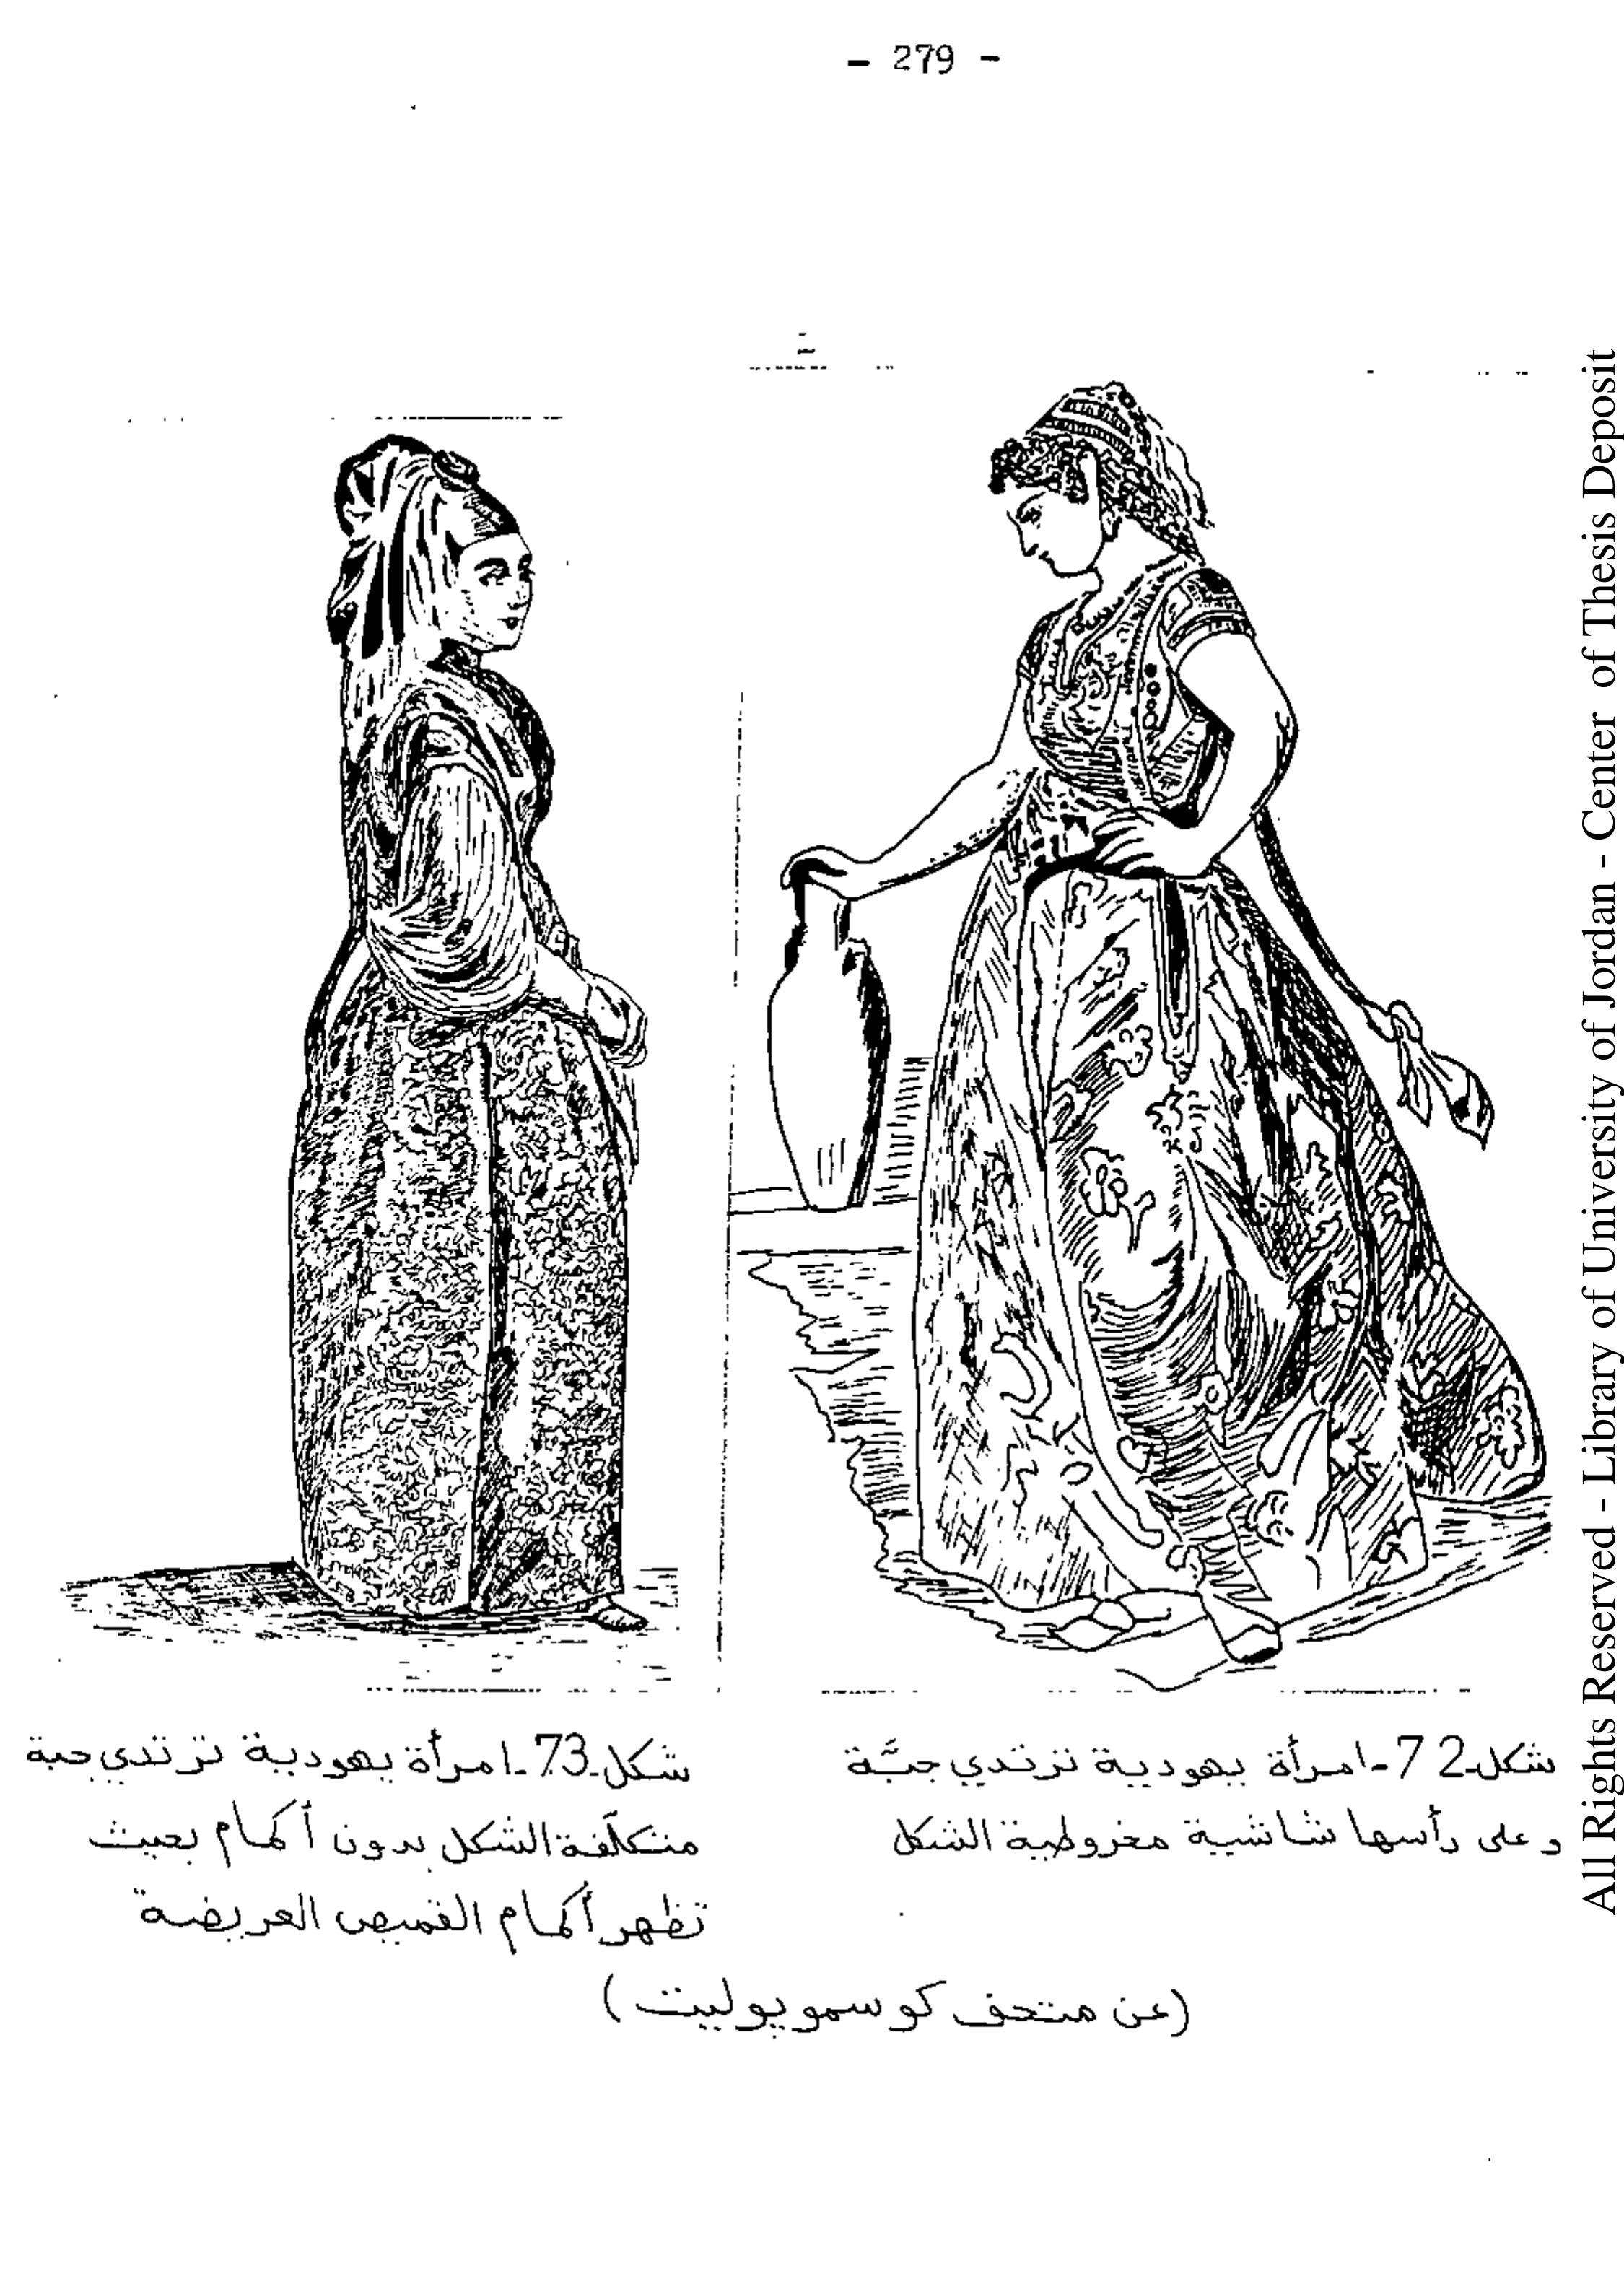 - 279 -
شكل-72-امرأة يهودية ترتدي جبَّة
وعلى رأسها شاشية مخروطية الشكل
شكل-73-امرأة يهودية ترتدي جبة
متكلّفة الشكل بدون أكمام بحيث
تظهر أكمام القميص العريضة
(عن متحف كوسموبوليت)
All Rights Reserved - Library of University of Jordan - Center of Thesis Deposit